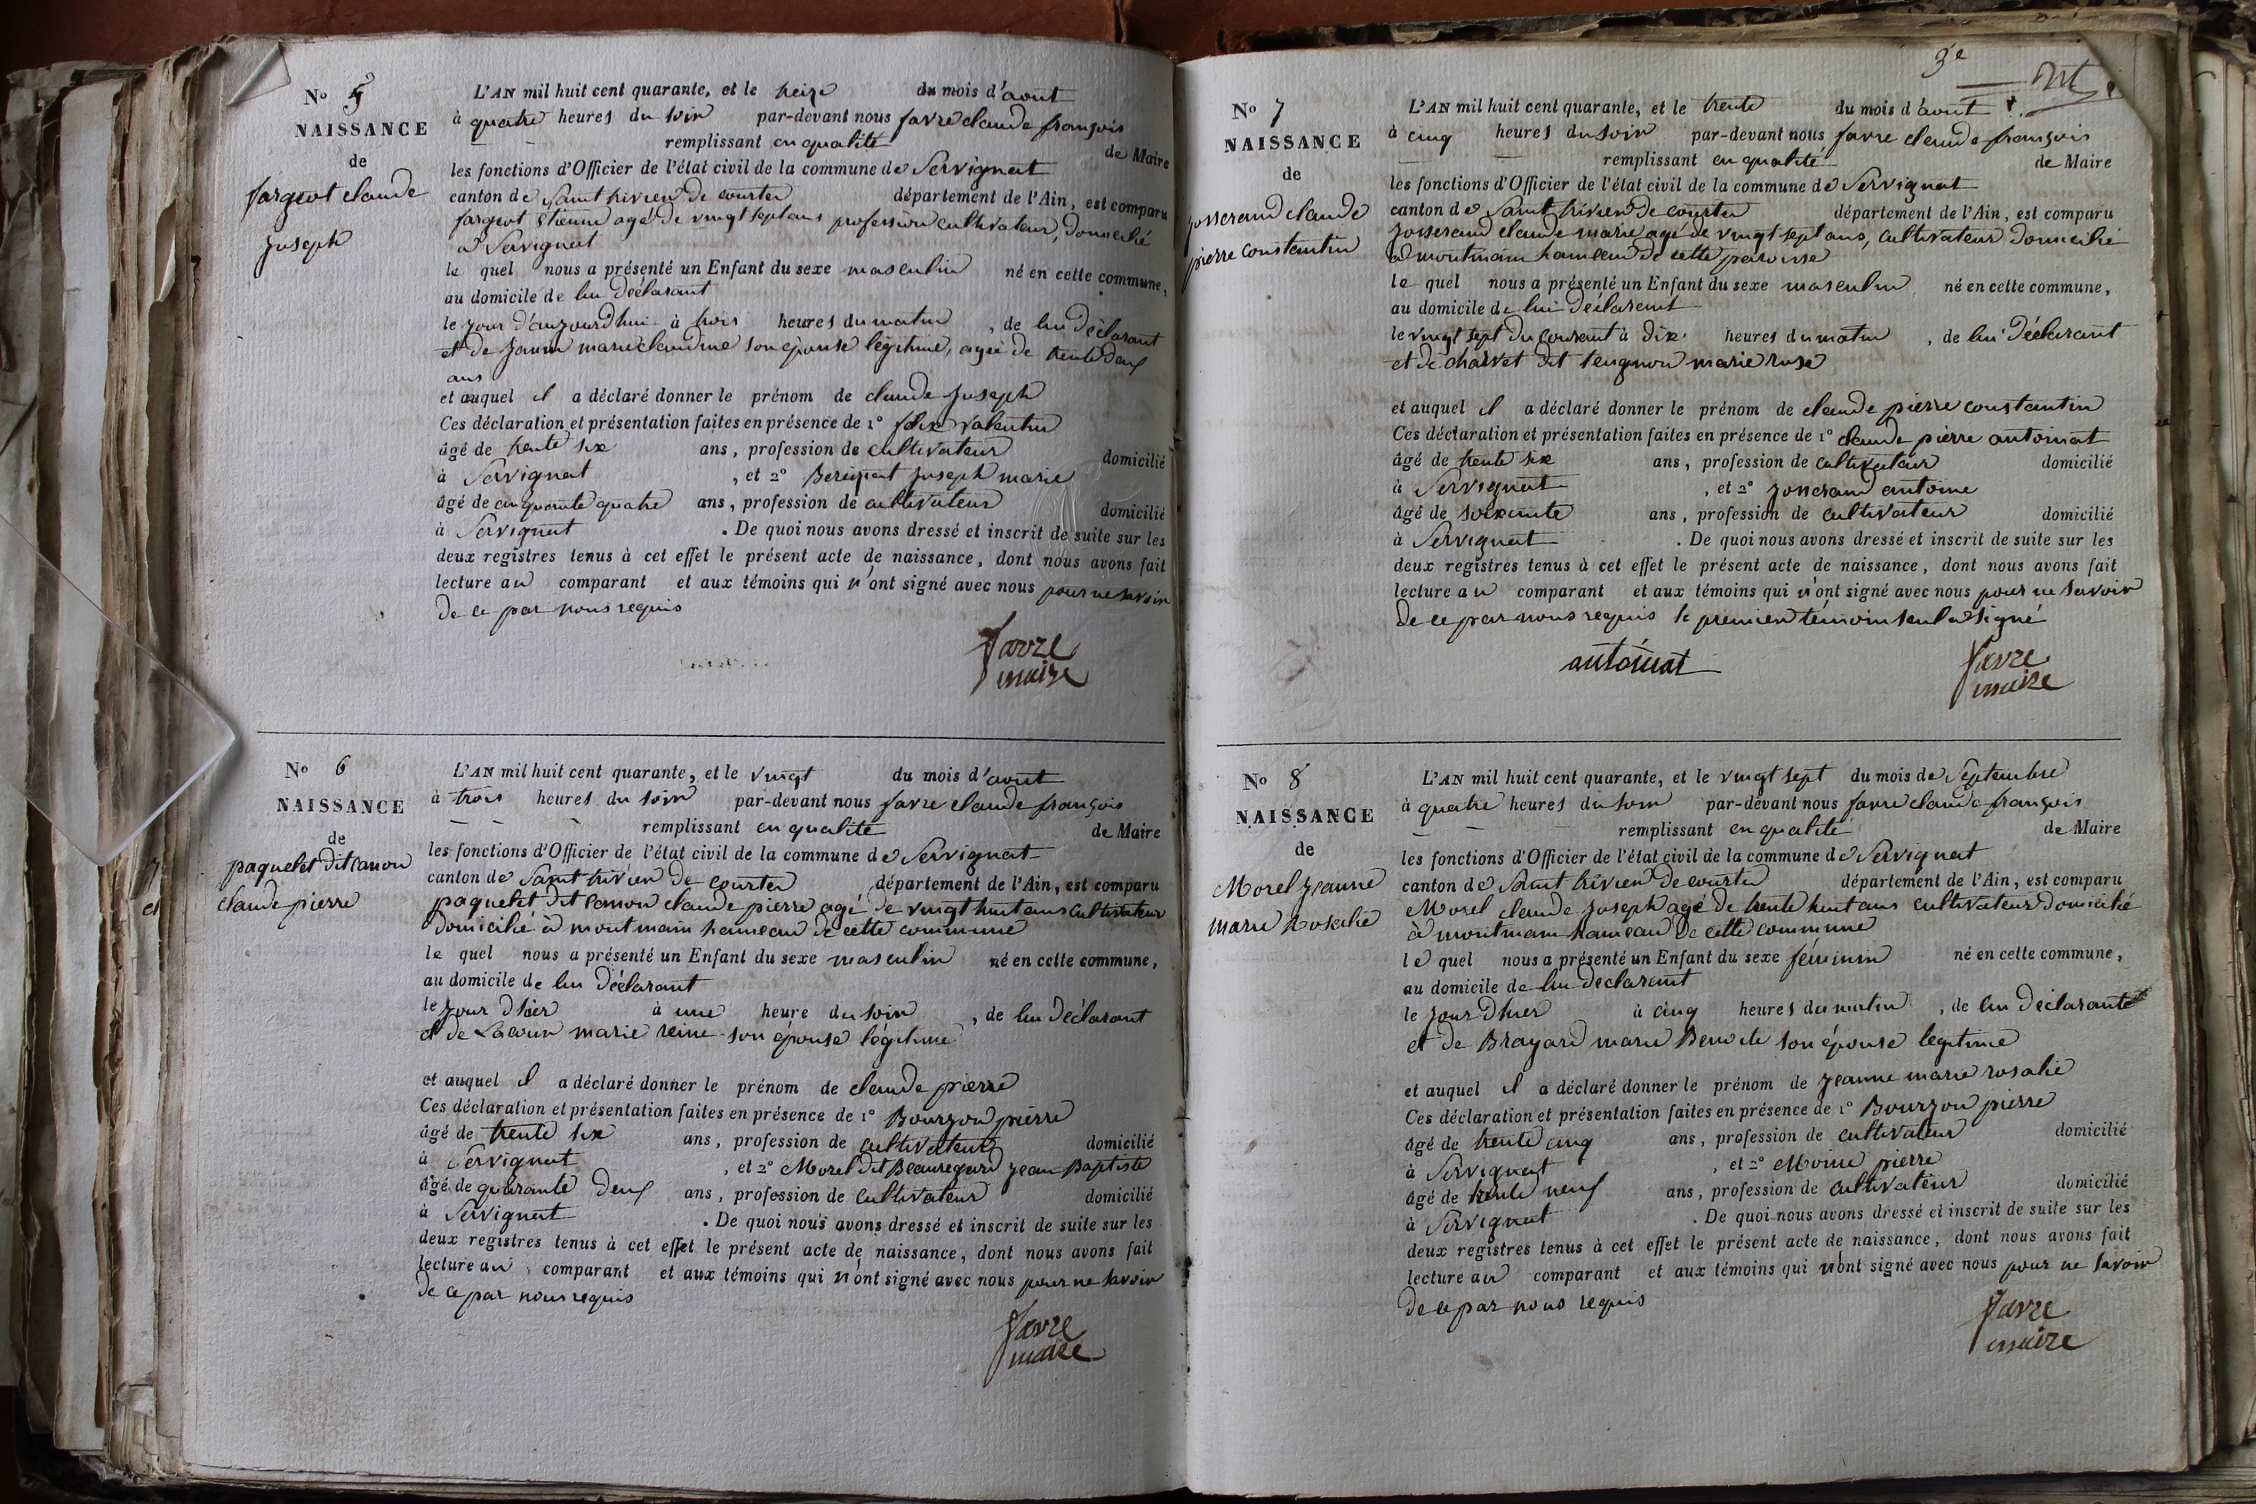 No 5
NAISSANCE
de
fargeot claude
joseph
L'AN mil huit cent quarante, et le treize du mois d'aout
à quatre heures du soir par-devant nous favre claude françois
remplissant en qualité de Maire
les fonctions d'Officier de l'état civil de la commune de Servignat
canton de Saint trivier de courtes département de l'Ain, est comparu
fargeot Etienne agé de vingt sept ans profession cultivateur, domicilié
a Servignat
le quel nous a présenté un Enfant du sexe masculin né en cette commune,
au domicile de lui déclarant
le jour d'aujourd'hui à trois heures du matin, de lui déclarant
et de marie claudine son épouse légitime, agée de trente deux
ans
et auquel il a déclaré donner le prénom de claude joseph
Ces déclaration et présentation faites en présence de 1° félix valentin
âgé de trente six ans, profession de cultivateur domicilié
à Servignat, et 2° joseph marie
âgé de cinquante quatre ans, profession de cultivateur domicilié
à Servignat. De quoi nous avons dressé et inscrit de suite sur les
deux registres tenus à cet effet le présent acte de naissance, dont nous avons fait
lecture au comparant et aux témoins qui n'ont signé avec nous pour ne savoir
de ce par nous requis
favre
maire
No 6
NAISSANCE
de
paquelet dit canon
claude pierre
L'AN mil huit cent quarante, et le vingt du mois d'aout
à trois heures du soir par-devant nous favre claude françois
remplissant en qualité de Maire
les fonctions d'Officier de l'état civil de la commune de Servignat
canton de Saint trivier de courtes département de l'Ain, est comparu
paquelet dit canon claude pierre agé de vingt huit ans cultivateur
domicilié à montmain hameau de cette commune
le quel nous a présenté un Enfant du sexe masculin né en cette commune,
au domicile de lui déclarant
le jour d'hier à une heure du soir, de lui déclarant
et de Lacour marie reine son épouse légitime
et auquel il a déclaré donner le prénom de claude pierre
Ces déclaration et présentation faites en présence de 1° Bourgon pierre
âgé de trente six ans, profession de cultivateur domicilié
à Servignat, et 2° Morel dit Beauregard jean Baptiste
âgé de quarante deux ans, profession de cultivateur domicilié
à Servignat. De quoi nous avons dressé et inscrit de suite sur les
deux registres tenus à cet effet le présent acte de naissance, dont nous avons fait
lecture au comparant et aux témoins qui n'ont signé avec nous pour ne savoir
de ce par nous requis
favre
maire
3e
No 7
NAISSANCE
de
josserand claude
pierre constantin
L'AN mil huit cent quarante, et le trente du mois d'aout
à cinq heures du soir par-devant nous favre claude françois
remplissant en qualité de Maire
les fonctions d'Officier de l'état civil de la commune de Servignat
canton de Saint trivier de courtes département de l'Ain, est comparu
josserand claude marie agé de vingt sept ans, cultivateur domicilié
a montmain hameau de cette paroisse
le quel nous a présenté un Enfant du sexe masculin né en cette commune,
au domicile de lui déclarant
le vingt sept du courant à dix heures du matin, de lui déclarant
et de charvet dit teugnon marie rose
et auquel il a déclaré donner le prénom de claude pierre constantin
Ces déclaration et présentation faites en présence de 1° claude pierre antoinat
âgé de trente six ans, profession de cultivateur domicilié
à Servignat, et 2° josserand antoine
âgé de soixante ans, profession de cultivateur domicilié
à Servignat. De quoi nous avons dressé et inscrit de suite sur les
deux registres tenus à cet effet le présent acte de naissance, dont nous avons fait
lecture au comparant et aux témoins qui n'ont signé avec nous pour ne savoir
de ce par nous requis le premier témoin seul a signé
antoinat
favre
maire
No 8
NAISSANCE
de
Morel jeanne
marie Rosalie
L'AN mil huit cent quarante, et le vingt sept du mois de Septembre
à quatre heures du soir par-devant nous favre claude françois
remplissant en qualité de Maire
les fonctions d'Officier de l'état civil de la commune de Servignat
canton de Saint trivier de courtes département de l'Ain, est comparu
Morel claude joseph agé de trente huit ans cultivateur domicilié
à montmain hameau de cette commune
le quel nous a présenté un Enfant du sexe féminin né en cette commune,
au domicile de lui déclarant
le jour d'hier à cinq heures du matin, de lui déclarante
et de Brayard marie Benoite son épouse légitime
et auquel il a déclaré donner le prénom de jeanne marie rosalie
Ces déclaration et présentation faites en présence de 1° Bourgon pierre
âgé de trente cinq ans, profession de cultivateur domicilié
à Servignat, et 2° Moine pierre
âgé de trente neuf ans, profession de cultivateur domicilié
à Servignat. De quoi nous avons dressé et inscrit de suite sur les
deux registres tenus à cet effet le présent acte de naissance, dont nous avons fait
lecture au comparant et aux témoins qui n'ont signé avec nous pour ne savoir
de ce par nous requis
favre
maire